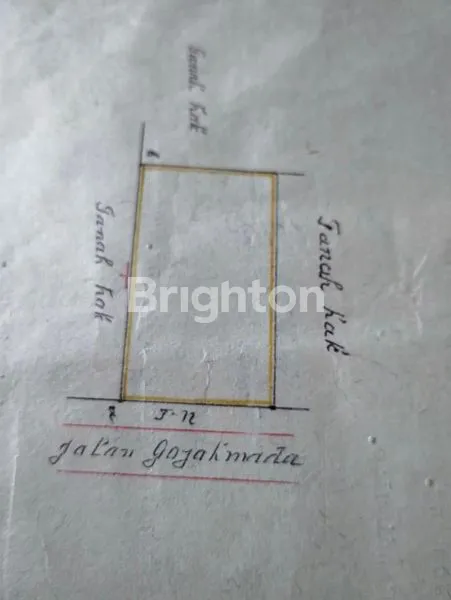 Tanah hak
6
Tanah hak
Tanah hak
Brighton
7
Jalan Gajahmada